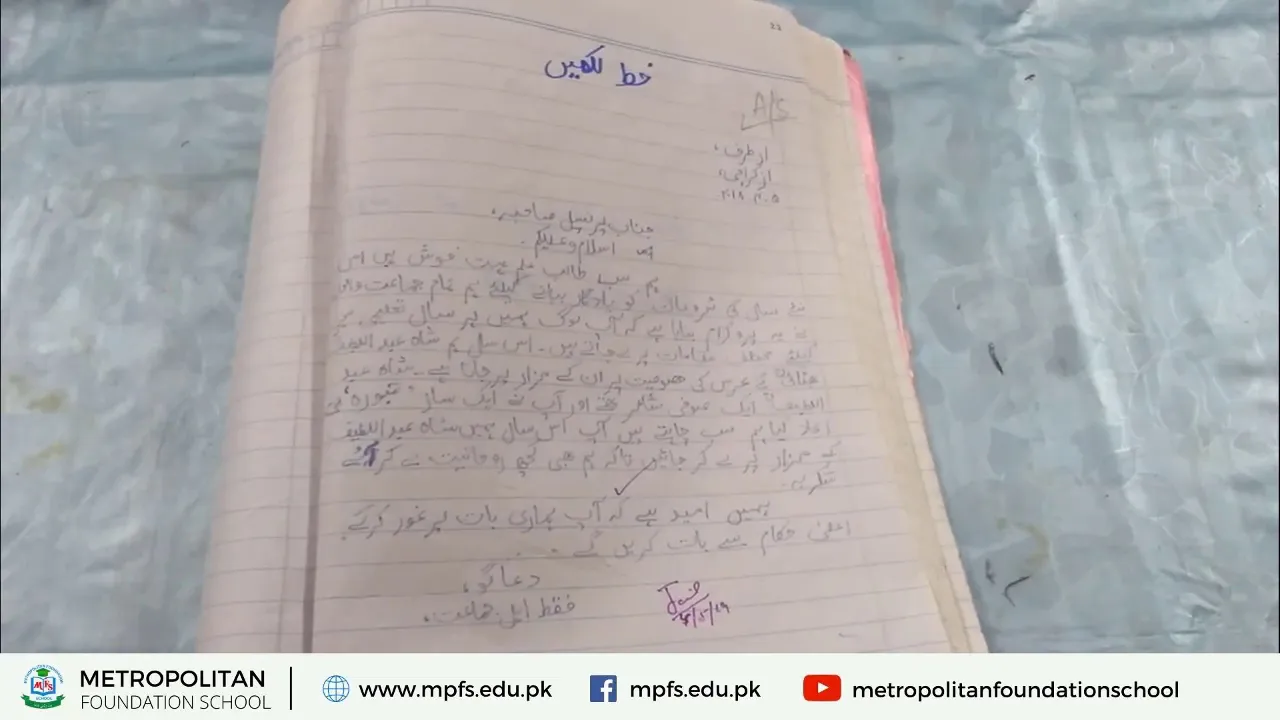 22
خط لکھیں
A/S
از طرف،
از کراچی،
جناب پرنسپل صاحبہ،
اسلام وعلیکم۔
ہم سب طالب علم بہت خوش ہیں اس
نئے سال کی شروعات کو یادگار بنانے کیلئے ہم تمام جماعت والوں
نے یہ پروگرام بنایا ہے کہ آپ لوگ ہمیں ہر سال تعلیمی
کیلئے مختلف مقامات پر لے جاتے ہیں۔ اس سال ہم شاہ عبد اللطیف
کے عرس کی خصوصیت پر ان کے مزار پر جانا ہے۔ شاہ عبد
اللطیف ایک صوفی شاعر تھے اور آپ نے ایک ساز "تنبورہ" بھی
ہم سب چاہتے ہیں آپ اس سال ہمیں شاہ عبد اللطیف
کے مزار پر لے کر جائیں تاکہ ہم بھی کچھ روحانیت لے کر آئے
شکریہ۔
ہمیں امید ہے کہ آپ ہماری بات پر غور کرکے
اعلیٰ حکام سے بات کریں گے۔
دعا گو،
فقط اہل جماعت،
METROPOLITAN
FOUNDATION SCHOOL
www.mpfs.edu.pk
mpfs.edu.pk
metropolitanfoundationschool